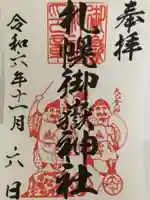 奉拝
札幌御嶽神社
令和六年十一月六日